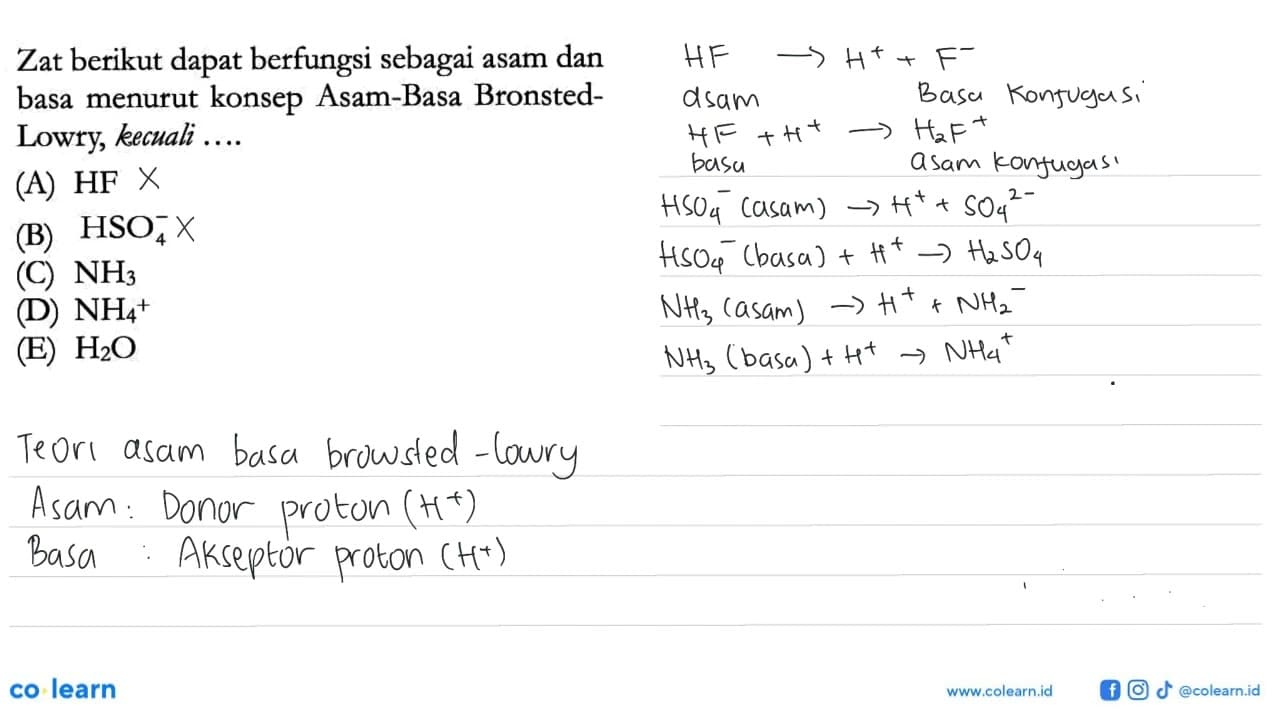 Zat berikut dapat berfungsi sebagai asam dan
basa menurut konsep Asam-Basa Bronsted-
Lowry, kecuali ....
(A) HF X
(B) HSO₄⁻ X
(C) NH₃
(D) NH₄⁺
(E) H₂O
HF → H⁺ + F⁻
asam Basa Konjugasi
HF + H⁺ → H₂F⁺
basa asam konjugasi
HSO₄⁻ (asam) → H⁺ + SO₄²⁻
HSO₄⁻ (basa) + H⁺ → H₂SO₄
NH₃ (asam) → H⁺ + NH₂⁻
NH₃ (basa) + H⁺ → NH₄⁺
Teori asam basa browsted - lowry
Asam : Donor proton (H⁺)
Basa : Akseptor proton (H⁺)
co learn
www.colearn.id @colearn.id